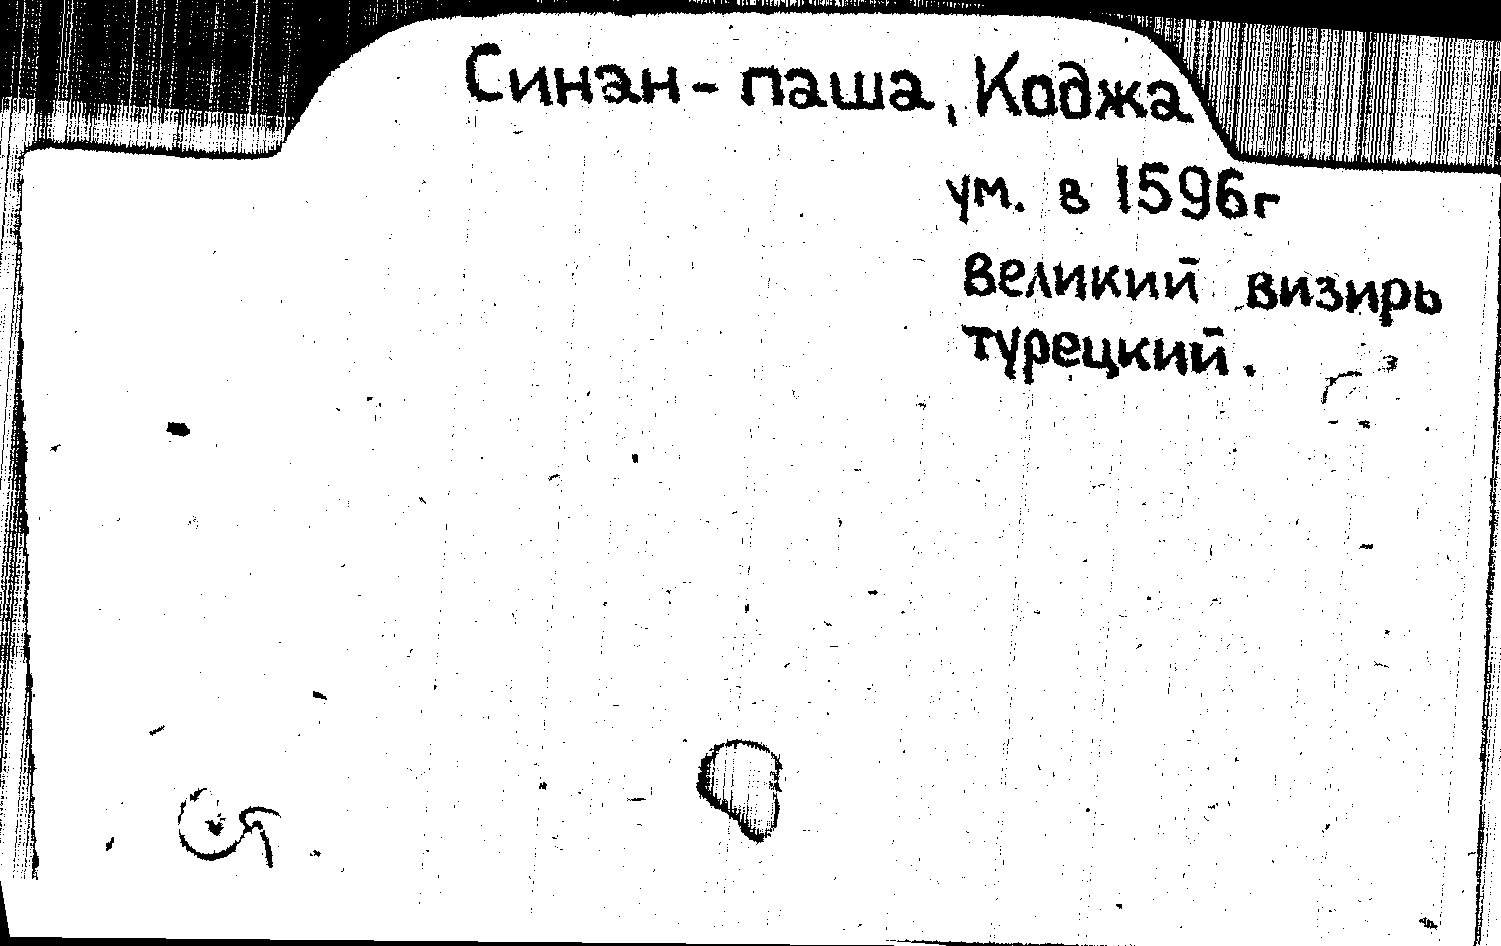 Синан-паша, Коджа
ум. в 1596г
великий визирь
турецкий.